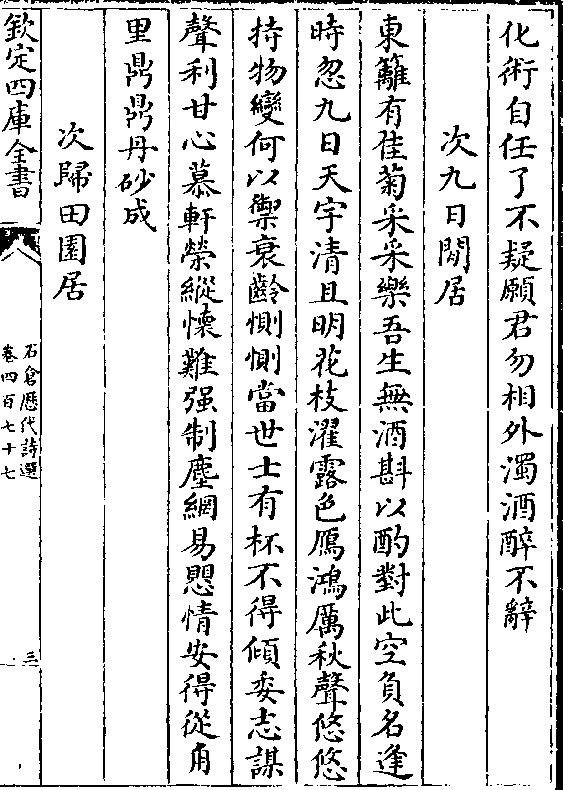 化術自任了不疑願君勿相外濁酒醉不辭
次九日閒居
東籬有佳菊采采樂吾生無酒斟以酌對此空負名逢
時忽九日天宇清且明花枝濯露色鴈鴻厲秋聲悠悠
持物變何以禦衰齡惻惻當世士有杯不得傾委志謀
聲利甘心慕軒榮縱懷難强制塵網易愳情安得從甪
里鼎鼎丹砂成
次歸田園居
欽定四庫全書
石倉歷代詩選
卷四百七十七
三